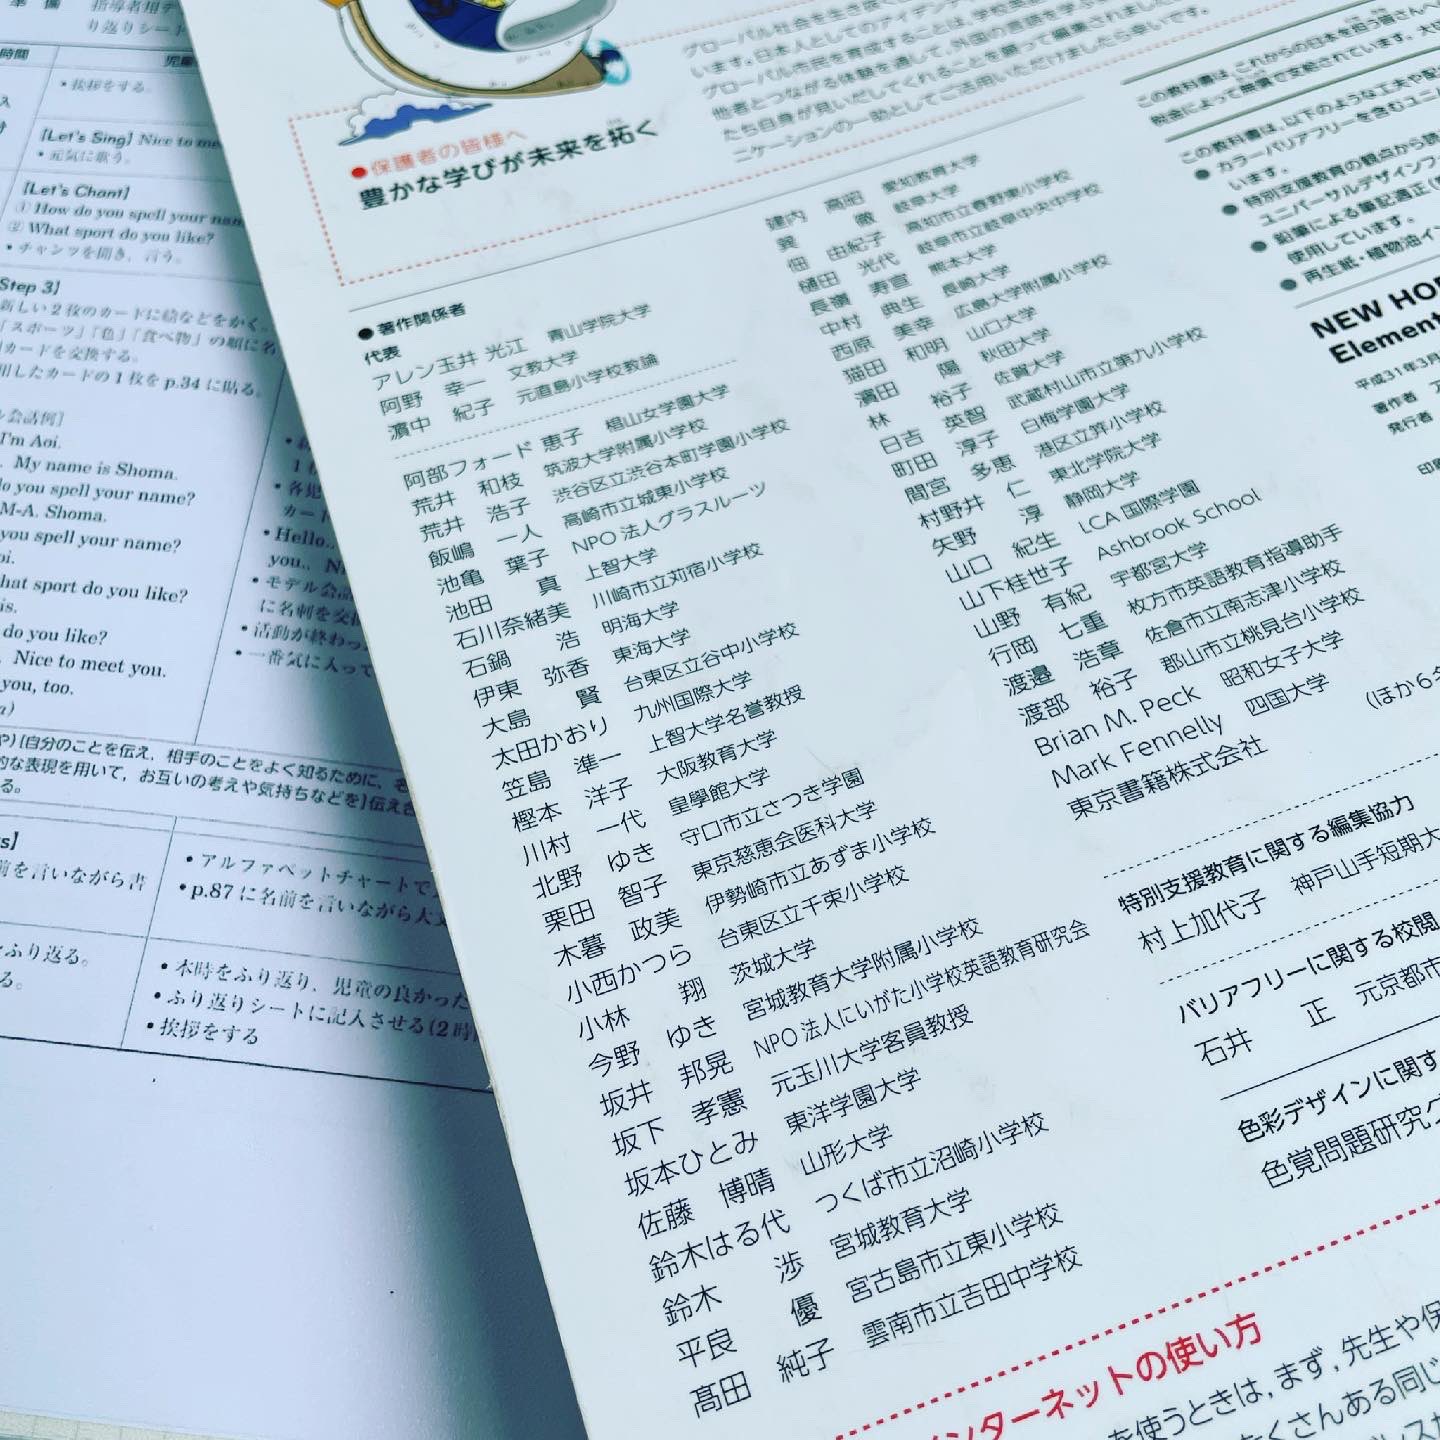 準 備
指導者用デ
り返りシート
時間
児童
・挨拶をする。
[Let's Sing] Nice to me
・元気に歌う。
[Let's Chant]
① How do you spell your nam
② What sport do you like?
・チャンツを聞き，言う。
Step 3]
新しい2枚のカードに絵などをかく。
「スポーツ」「色」「食べ物」の順に名
カードを交換する。
用したカードの1枚をp.34に貼る。
ル会話例]
I'm Aoi.
. My name is Shoma.
do you spell your name?
M-A. Shoma.
you spell your name?
oi.
hat sport do you like?
is.
do you like?
. Nice to meet you.
you, too.
・Hello..
you.. Ni
・モデル会話
に名刺を交
・活動が終わっ
・一番気に入って
や)[自分のことを伝え，相手のことをよく知るために，
的な表現を用いて，お互いの考えや気持ちなどを]伝え合
る。
前を言いながら書
・アルファベットチャートで
・p.87に名前を言いながら大文
ふり返る。
る。
・本時をふり返り，児童の良かった
・ふり返りシートに記入させる(2時
・挨拶をする
グローバル社会を生き抜く
います。日本人としてのアイデン
グローバル市民を育成することは，学校英語
他者とつながる体験を通して，外国の言語を学ぶ
たち自身が見いだしてくれることを願って編集されました
ニケーションの一助としてご活用いただけましたら幸いです。
●保護者の皆様へ
豊かな学びが未来を拓く
●著作関係者
代表
アレン玉井 光江 青山学院大学
阿野 幸一 文教大学
濵中 紀子 元直島小学校教諭
阿部フォード 恵子 椙山女学園大学
荒井 和枝 筑波大学附属小学校
荒井 浩子 渋谷区立渋谷本町学園小学校
飯嶋 一人 高崎市立城東小学校
池亀 葉子 NPO法人グラスルーツ
池田 真 上智大学
石川奈緒美 川崎市立苅宿小学校
石鍋 浩 明海大学
伊東 弥香 東海大学
大島 賢 台東区立谷中小学校
太田かおり 九州国際大学
笠島 準一 上智大学名誉教授
樫本 洋子 大阪教育大学
川村 一代 皇學館大学
北野 ゆき 守口市立さつき学園
栗田 智子 東京慈恵会医科大学
木暮 政美 伊勢崎市立あずま小学校
小西かつら 台東区立千束小学校
小林 翔 茨城大学
今野 ゆき 宮城教育大学附属小学校
坂井 邦晃 NPO法人にいがた小学校英語教育研究会
坂下 孝憲 元玉川大学客員教授
坂本ひとみ 東洋学園大学
佐藤 博晴 山形大学
鈴木はる代 つくば市立沼崎小学校
鈴木 渉 宮城教育大学
平良 優 宮古島市立東小学校
髙田 純子 雲南市立吉田中学校
建内 高昭 愛知教育大学
巽 徹 岐阜大学
佃 由紀子 高知市立春野東小学校
樋田 光代 岐阜市立岐阜中央中学校
長嶺 寿宣 熊本大学
中村 典生 長崎大学
西原 美幸 広島大学附属小学校
猫田 和明 山口大学
濱田 陽 秋田大学
林 裕子 佐賀大学
日吉 英智 武蔵村山市立第九小学校
町田 淳子 白梅学園大学
間宮 多恵 港区立笄小学校
村野井 仁 東北学院大学
矢野 淳 静岡大学
山口 紀生 LCA国際学園
山下桂世子 Ashbrook School
山野 有紀 宇都宮大学
行岡 七重 枚方市英語教育指導助手
渡邉 浩章 佐倉市立南志津小学校
渡部 裕子 郡山市立桃見台小学校
Brian M. Peck 昭和女子大学
Mark Fennelly 四国大学
東京書籍株式会社
(ほか6名
特別支援教育に関する編集協力
村上加代子 神戸山手短期大
バリアフリーに関する校閲
石井 正 元京都市
色彩デザインに関す
色覚問題研究グ
この教科書は，これからの日本を担う皆さんへ
税金によって無償で支給されています。大切
この教科書は，以下のような工夫や配
●カラーバリアフリーを含むユニ
います。
●特別支援教育の観点から
ユニバーサルデザインフ
●鉛筆による筆記適正(
使用しています。
●再生紙・植物油イン
NEW HOP
Element
平成31年3月
著作者
発行者
印刷
インターネットの使い方
を使うときは，まず，先生や保